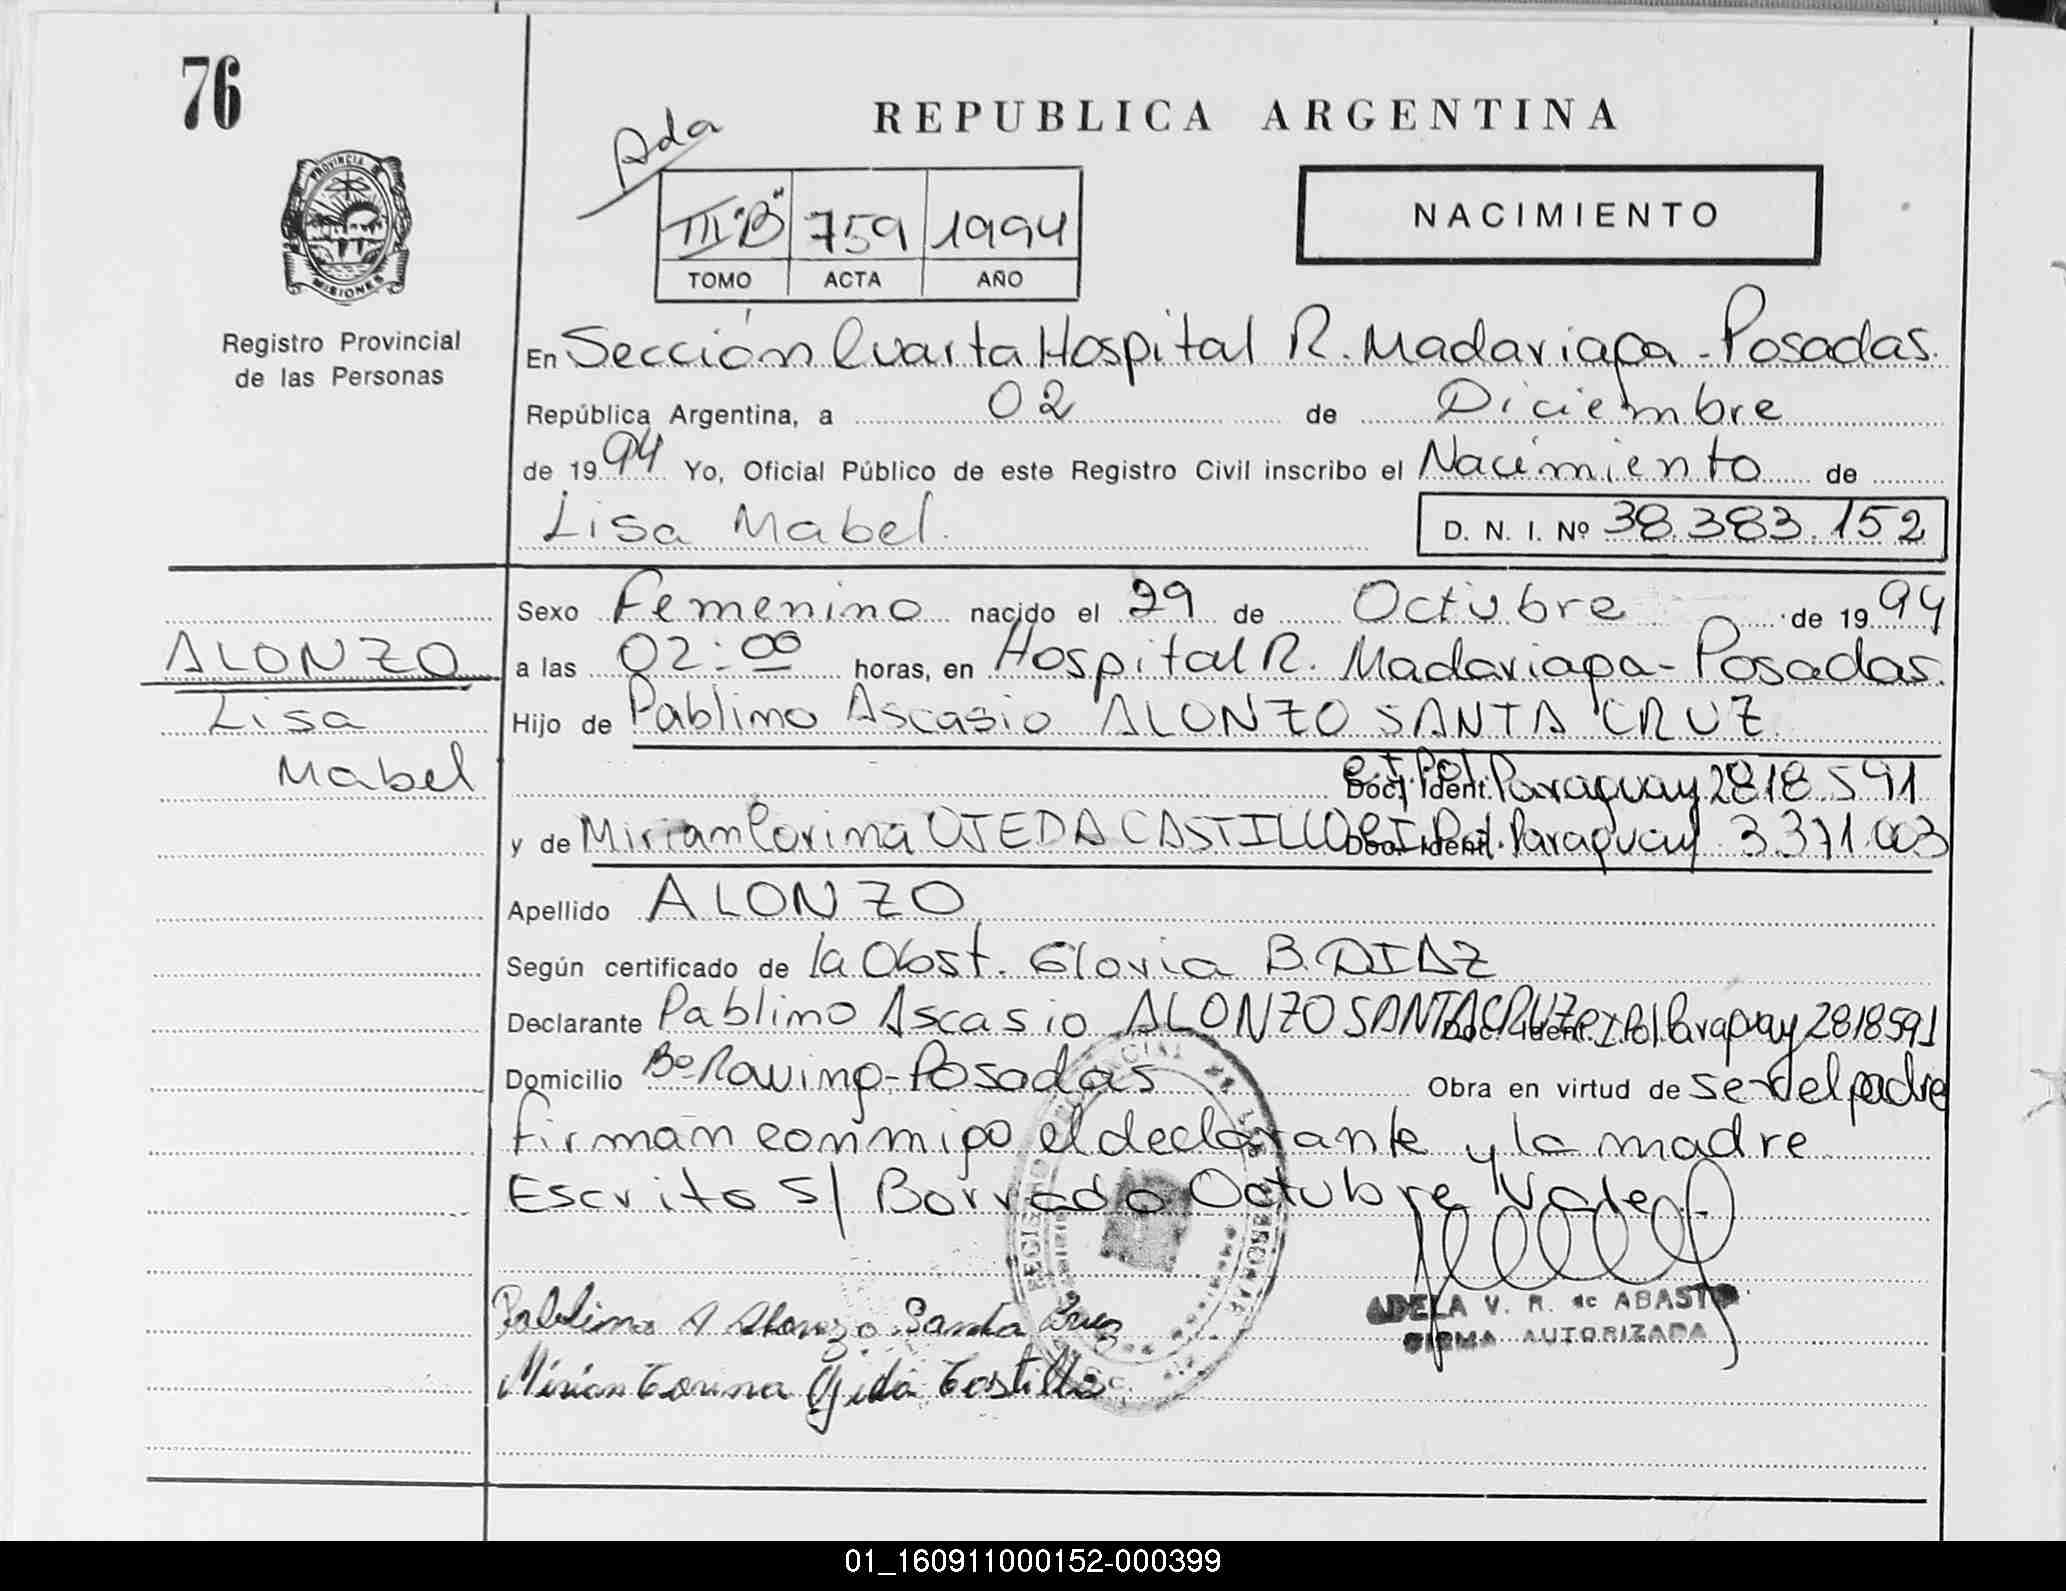 76
REPUBLICA ARGENTINA
Ada
III "B" 759 1994
TOMO ACTA AÑO
NACIMIENTO
PROVINCIA
MISIONES
Registro Provincial
de las Personas
En Sección Cuarta Hospital R. Madariaga - Posadas.
República Argentina, a 02 de Diciembre
de 1994 Yo, Oficial Público de este Registro Civil inscribo el Nacimiento de
Lisa Mabel. D. N. I. Nº 38.383.152
Sexo Femenino nacido el 29 de Octubre de 1994
ALONZO
a las 02:00 horas, en Hospital R. Madariaga - Posadas.
Lisa
Hijo de Pablino Ascasio ALONZO SANTA CRUZ
Mabel
Doc. Ident. C.I.Pol. Paraguay 2818.591
y de Mirian Corina OJEDA CASTILLO Doc. Ident. C.I.Pol. Paraguay 3.371.003
Apellido ALONZO
Según certificado de la Obst. Gloria B. DIAZ
Declarante Pablino Ascasio ALONZO SANTA CRUZ Doc. Ident. C.I.Pol. Paraguay 2818591
Domicilio Bº Posadas Obra en virtud de ser el padre
firman conmigo el declarante y la madre
Escrito s/ Borrado Octubre Vale.
Pablino A Alonzo Santa Cruz
ADELA V. R. de ABASTO
FIRMA AUTORIZADA
Mirian Corina Ojeda Castillo
01_160911000152-000399